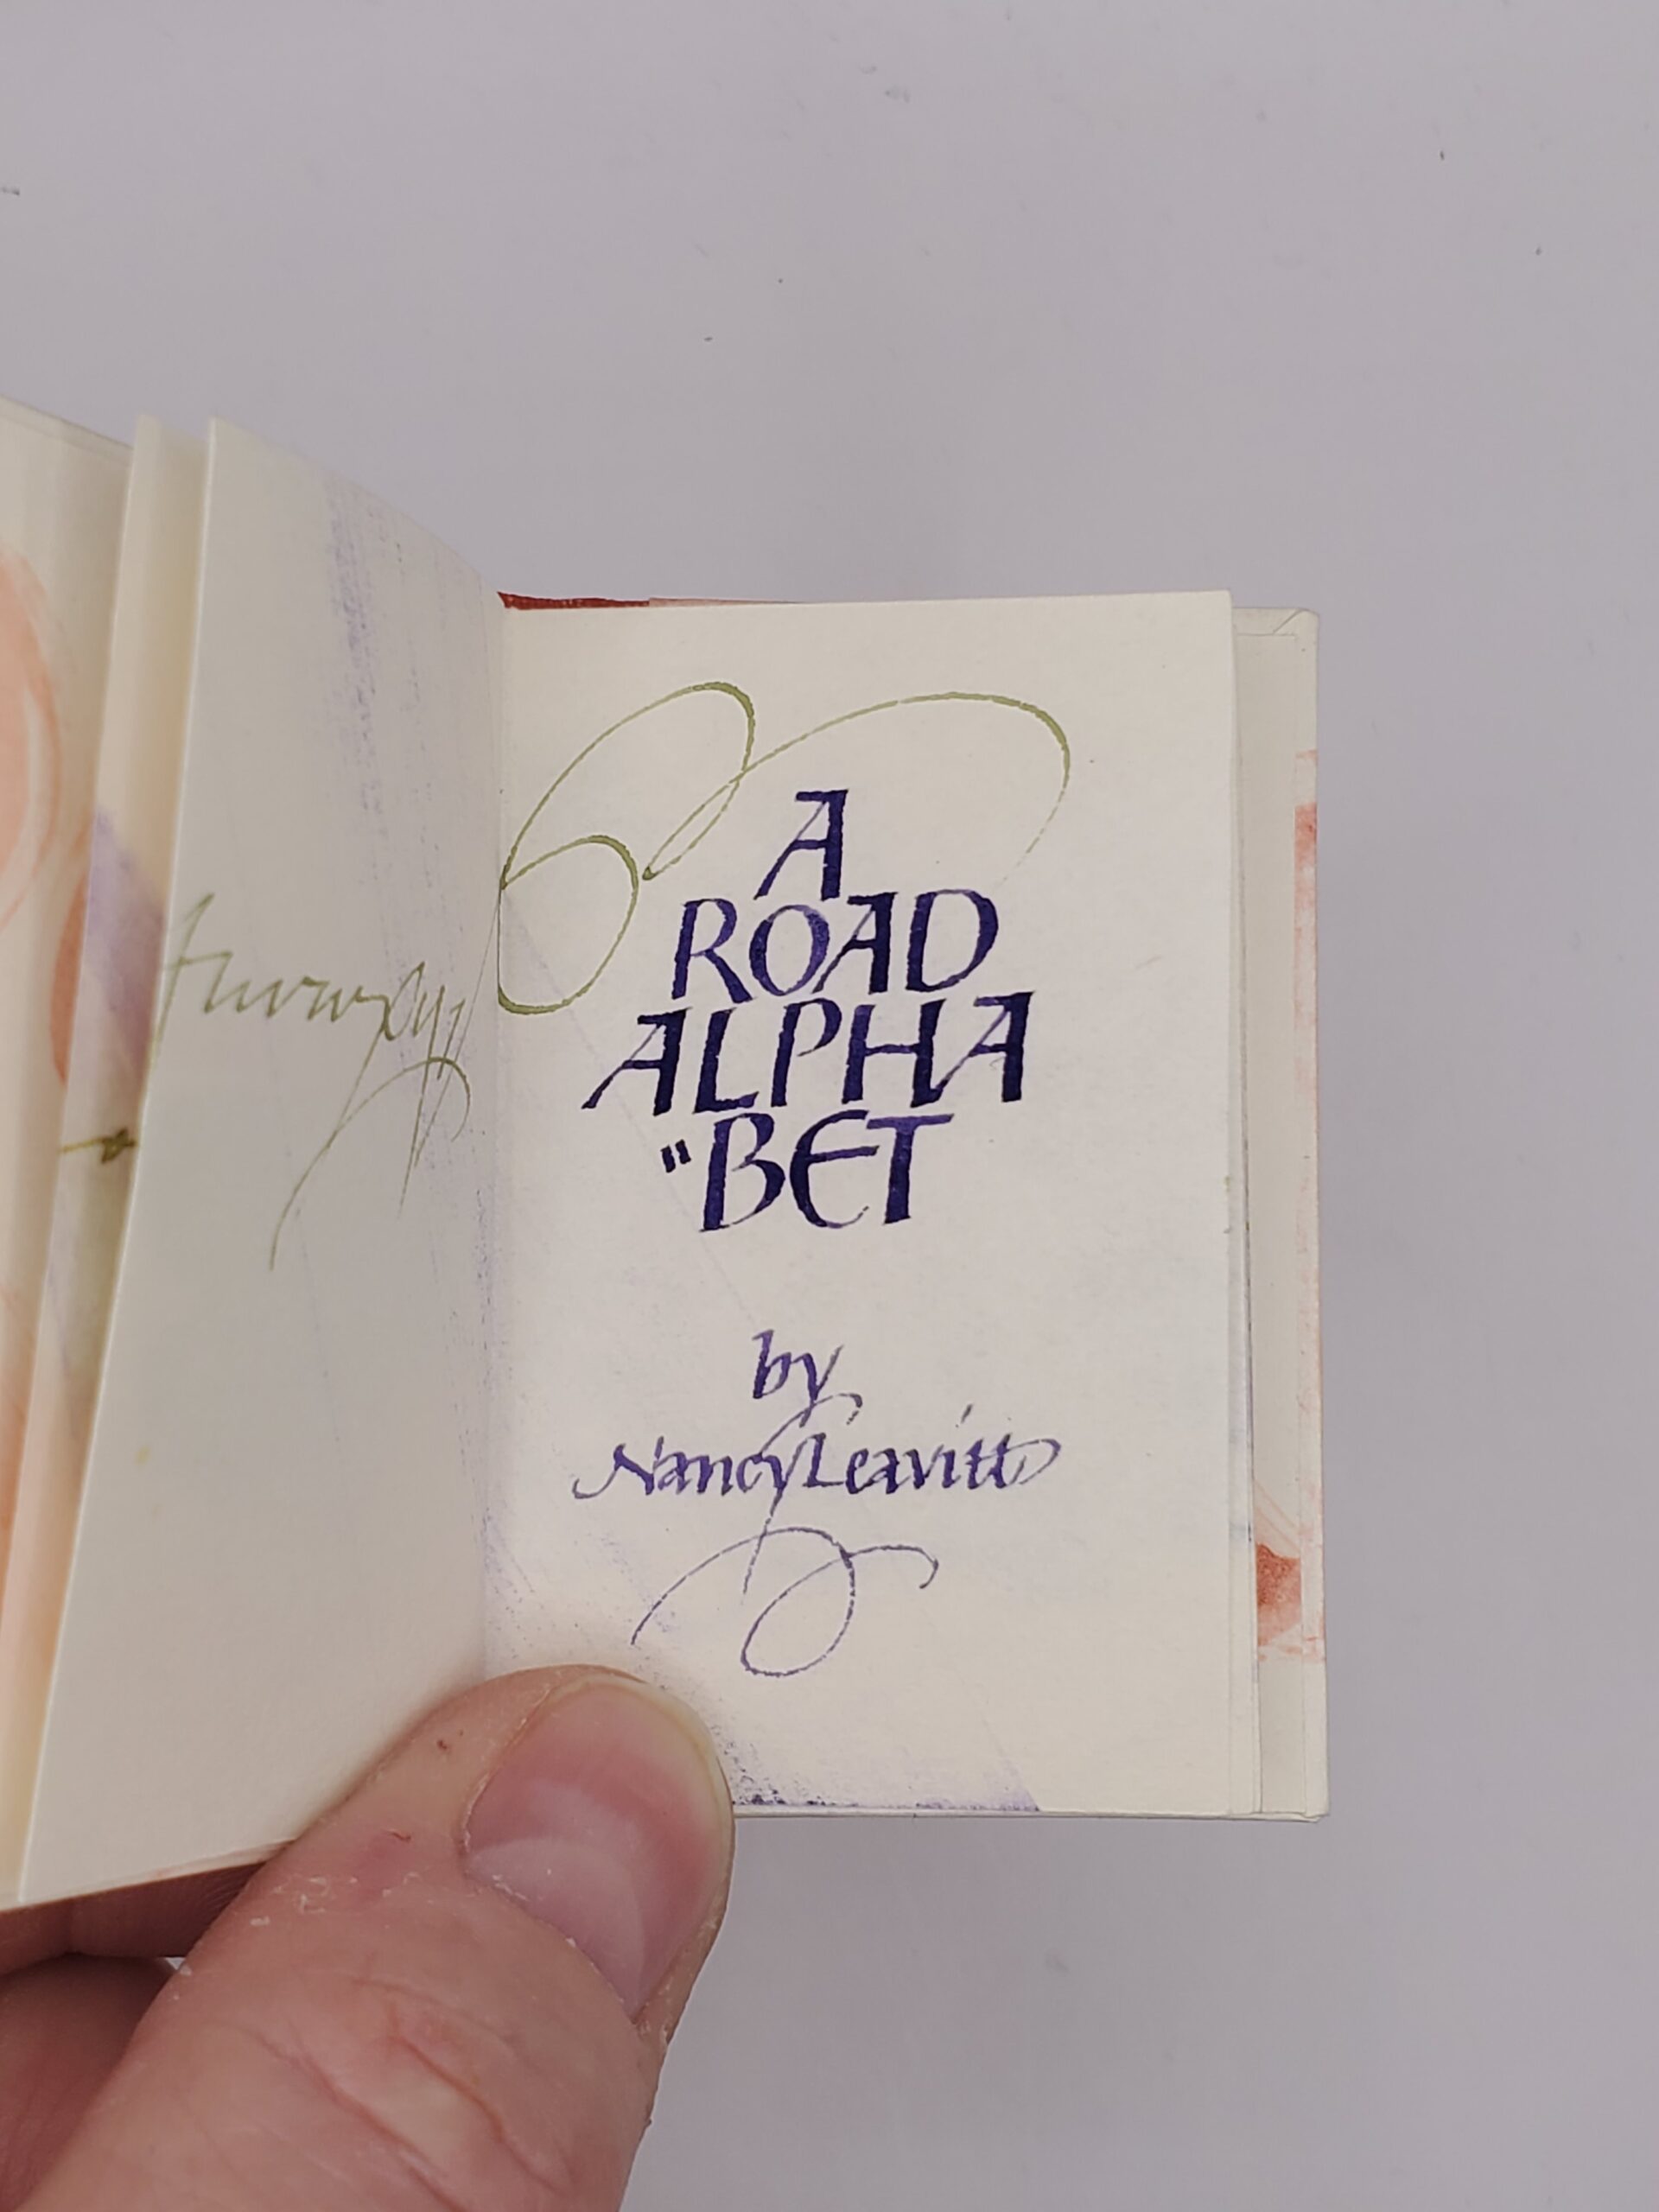 A
ROAD
ALPHA
"BET
by
Nancy Leavitt